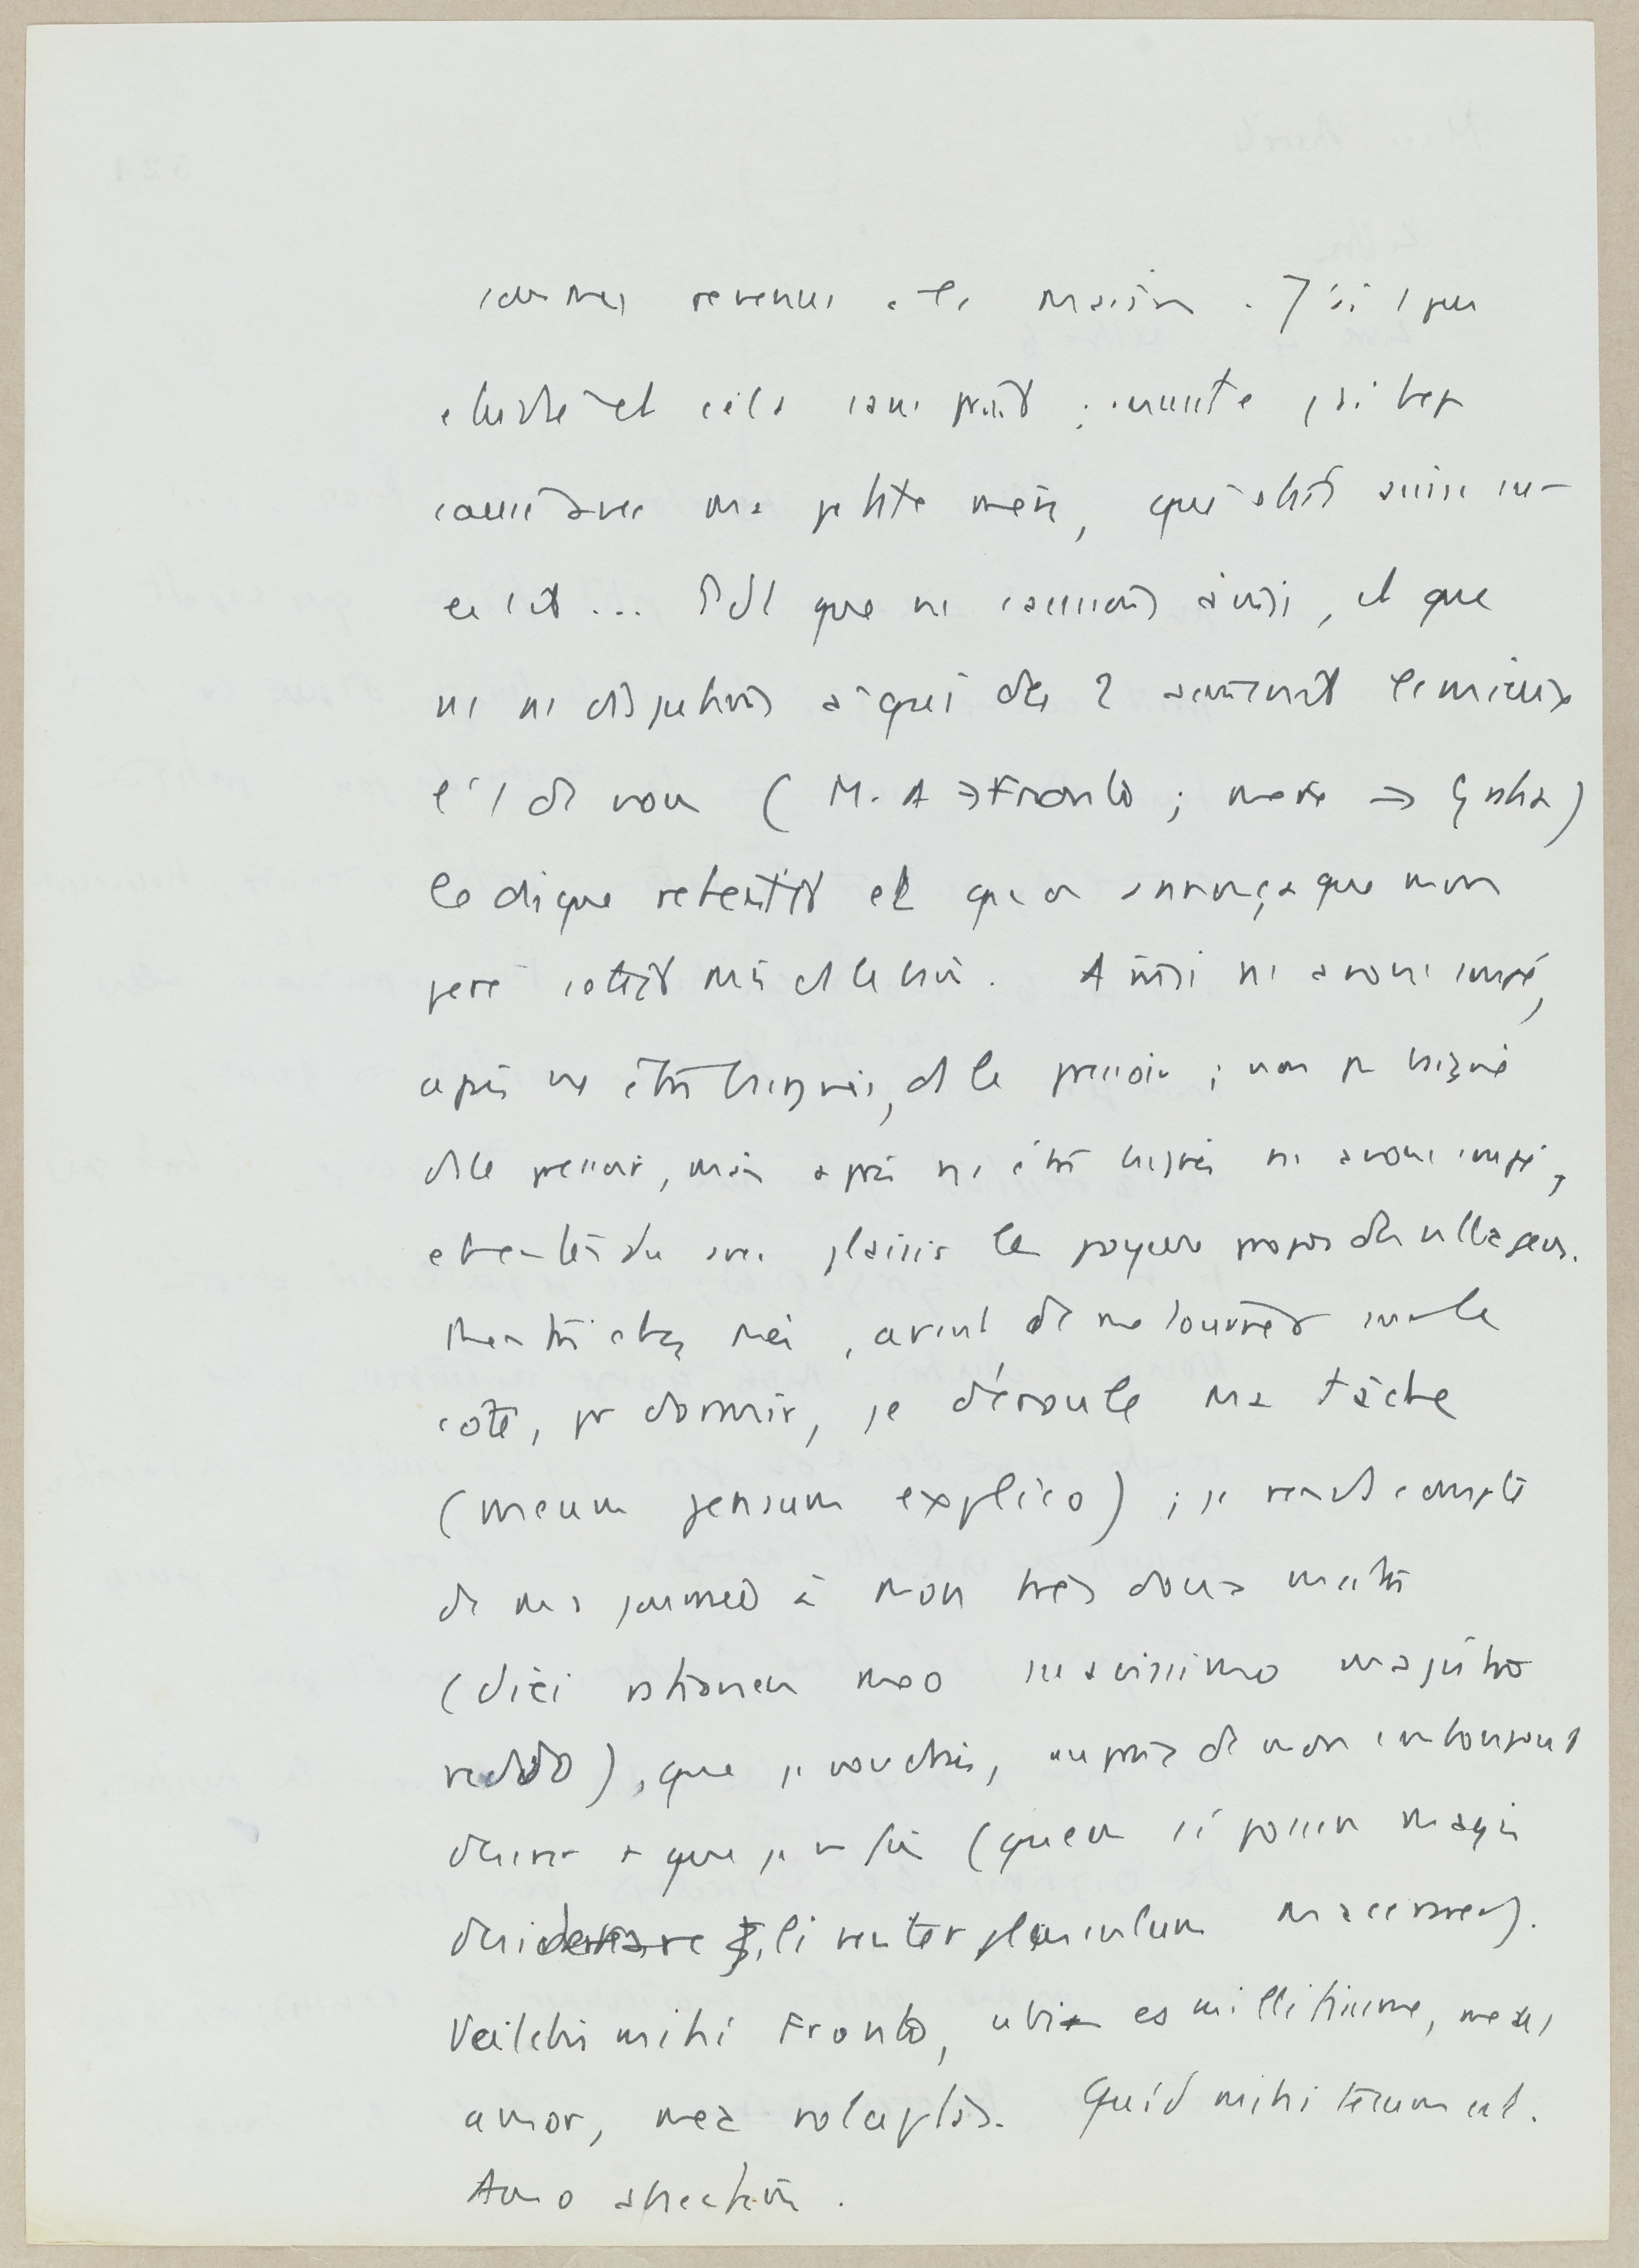 sommes revenus à la maison. J'ai 1 peu
étudié et cela sans profit ; ensuite j'ai bcp
causé avec ma petite mère, qui était assise su-
le lit... Pdt que ns causions ainsi, et que
ns ns disputions à qui des 2 aimerait le mieux
l'1 de vous (M. A → Fronto ; mère → Gratia)
le disque retentit et qu'on annonça que mon
père était mis ds le bain. Ainsi ns avons soupé,
après ns être baignés, ds le pressoir ; non pas baignés
ds le pressoir, mais après ns être baignés ns avons soupé,
et entendu avec plaisir les joyeux propos des villageois.
Rentré chez moi, avant de me tourner sur le
côté, pr dormir, je déroule ma tâche
(meum pensum explico) ; je rends compte
de ma journée à mon très doux maître
(diei rationem meo suavissimo magistro
reddo), que je voudrais, au prix de mon embonpoint
désirer + que je ne fais (quem si possem magis
desiderare, libenter plusculum macerarer).
Valebis mihi Fronto, ubi es mellitissime, meus
amor, mea voluptas. Quid mihi tecum est.
Amo absentem.